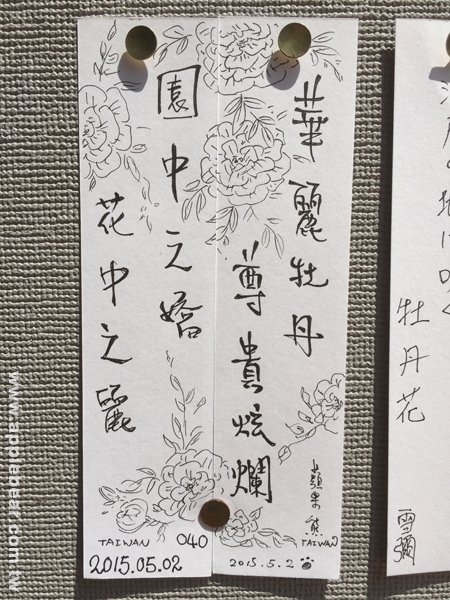 牡丹花
雪彌
華麗牡丹
尊貴炫爛
蘋果熊
TAIWAN
2015.5.2
園中之嬌
花中之麗
TAIWAN 040
2015.05.02
www.applebear.com.tw